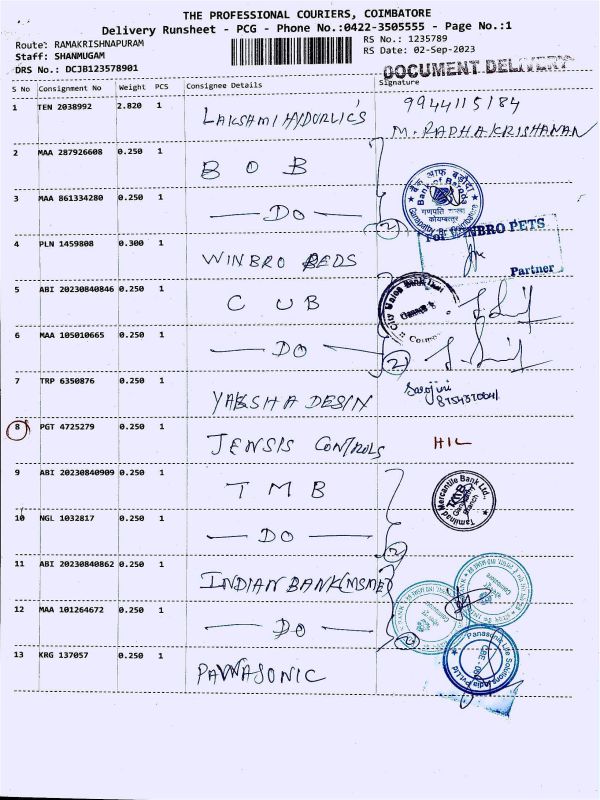 THE PROFESSIONAL COURIERS, COIMBATORE
Delivery Runsheet - PCG - Phone No.:0422-3505555 - Page No.:1
Route: RAMAKRISHNAPURAM
RS No.: 1235789
Staff: SHANMUGAM
RS Date: 02-Sep-2023
DRS No.: DCJB123578901
DOCUMENT DELIVERY
S No Consignment No Weight PCS Consignee Details Signature
1 TEN 2038992 2.820 1 LAKSHMI HYDORLIC'S 9944115184
M. RADHAKRISHANAN
2 MAA 287926608 0.250 1 B O B
बैंक ऑफ़ बड़ौदा
Bank of Baroda
3 MAA 861334280 0.250 1 — DO — 2
गणपति शाखा
कोयम्बत्तूर
For WINBRO PETS
4 PLN 1459808 0.300 1 WINBRO BEDS
Partner
5 ABI 20230840846 0.250 1 C U B
6 MAA 105010665 0.250 1 — DO — 2
7 TRP 6350876 0.250 1 YAKSHA DESIN Sarojini
8 PGT 4725279 0.250 1 JENSIS CONTROLS HIL
9 ABI 20230840909 0.250 1 T M B
Tamilnad Mercantile Bank Ltd.,
TMB
Branch
10 NGL 1032817 0.250 1 — DO — 2
11 ABI 20230840862 0.250 1 INDIAN BANK (MSME)
12 MAA 101264672 0.250 1 — DO — 2
13 KRG 137057 0.250 1 PANASONIC
Panasonic Life Solutions India Pvt.Ltd